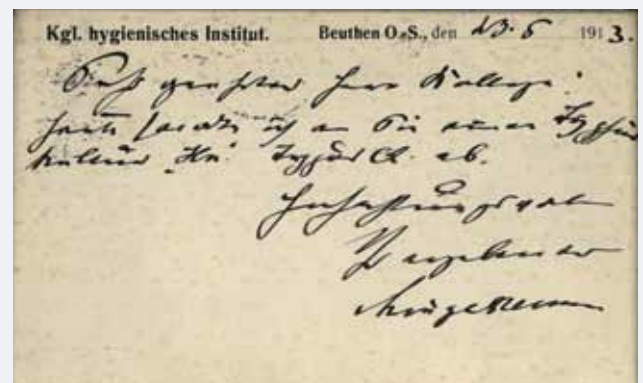 Kgl. hygienisches Institut. Beuthen O.-S., den 23. 6 1913.
Sehr geehrter Herr Kollege!
heute sandte ich an Sie einen Typhus
kultur Typus ab.
Hochachtungsvoll
ergebenster